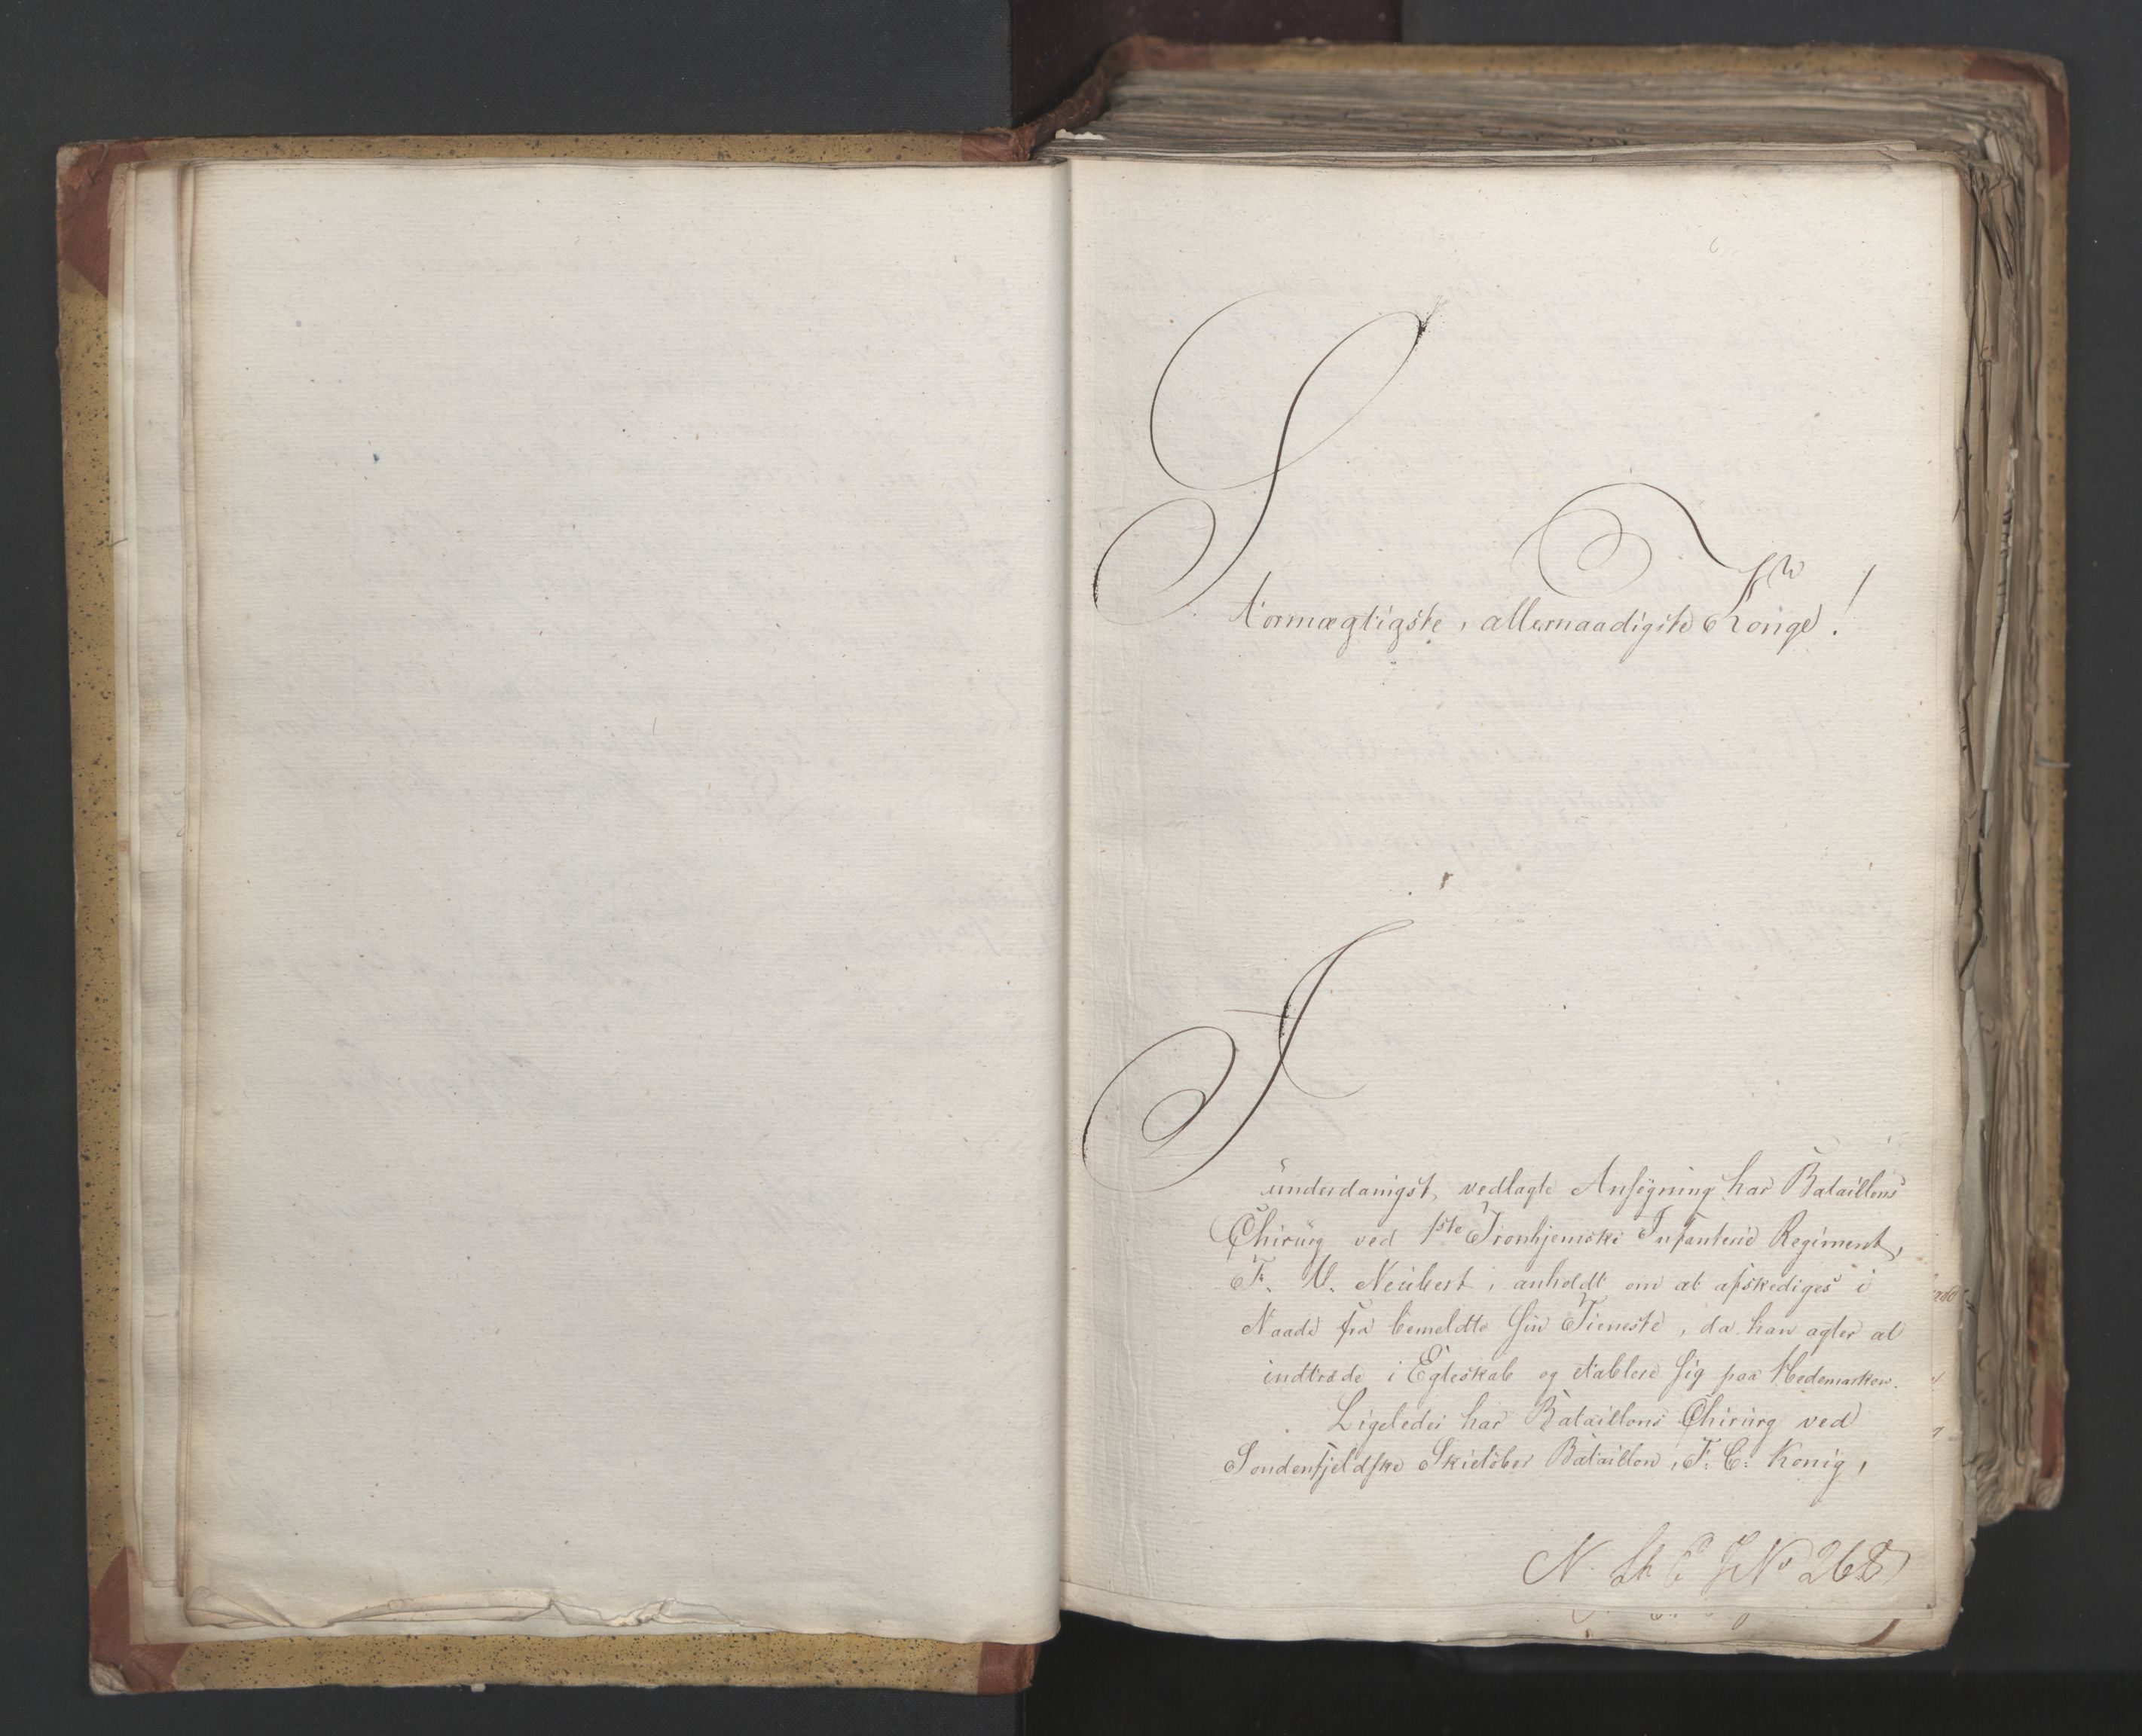 Stormægtigste, allernaadigste Konge!
I
underdanigst vedlagte Ansøgning har Bataillons
Chirurg ved 1ste Tronhjemske Infanterie Regiment,
F. W. Neubert, anholdt om at afskediges i
Naade fra bemeldte sin Tieneste, da han agter at
indtræde i Egteskab og etablere sig paa Hedemarken.
Ligeledes har Bataillons Chirurg ved
Søndenfjeldske Skieløber Bataillon, F. C. König,
No 268